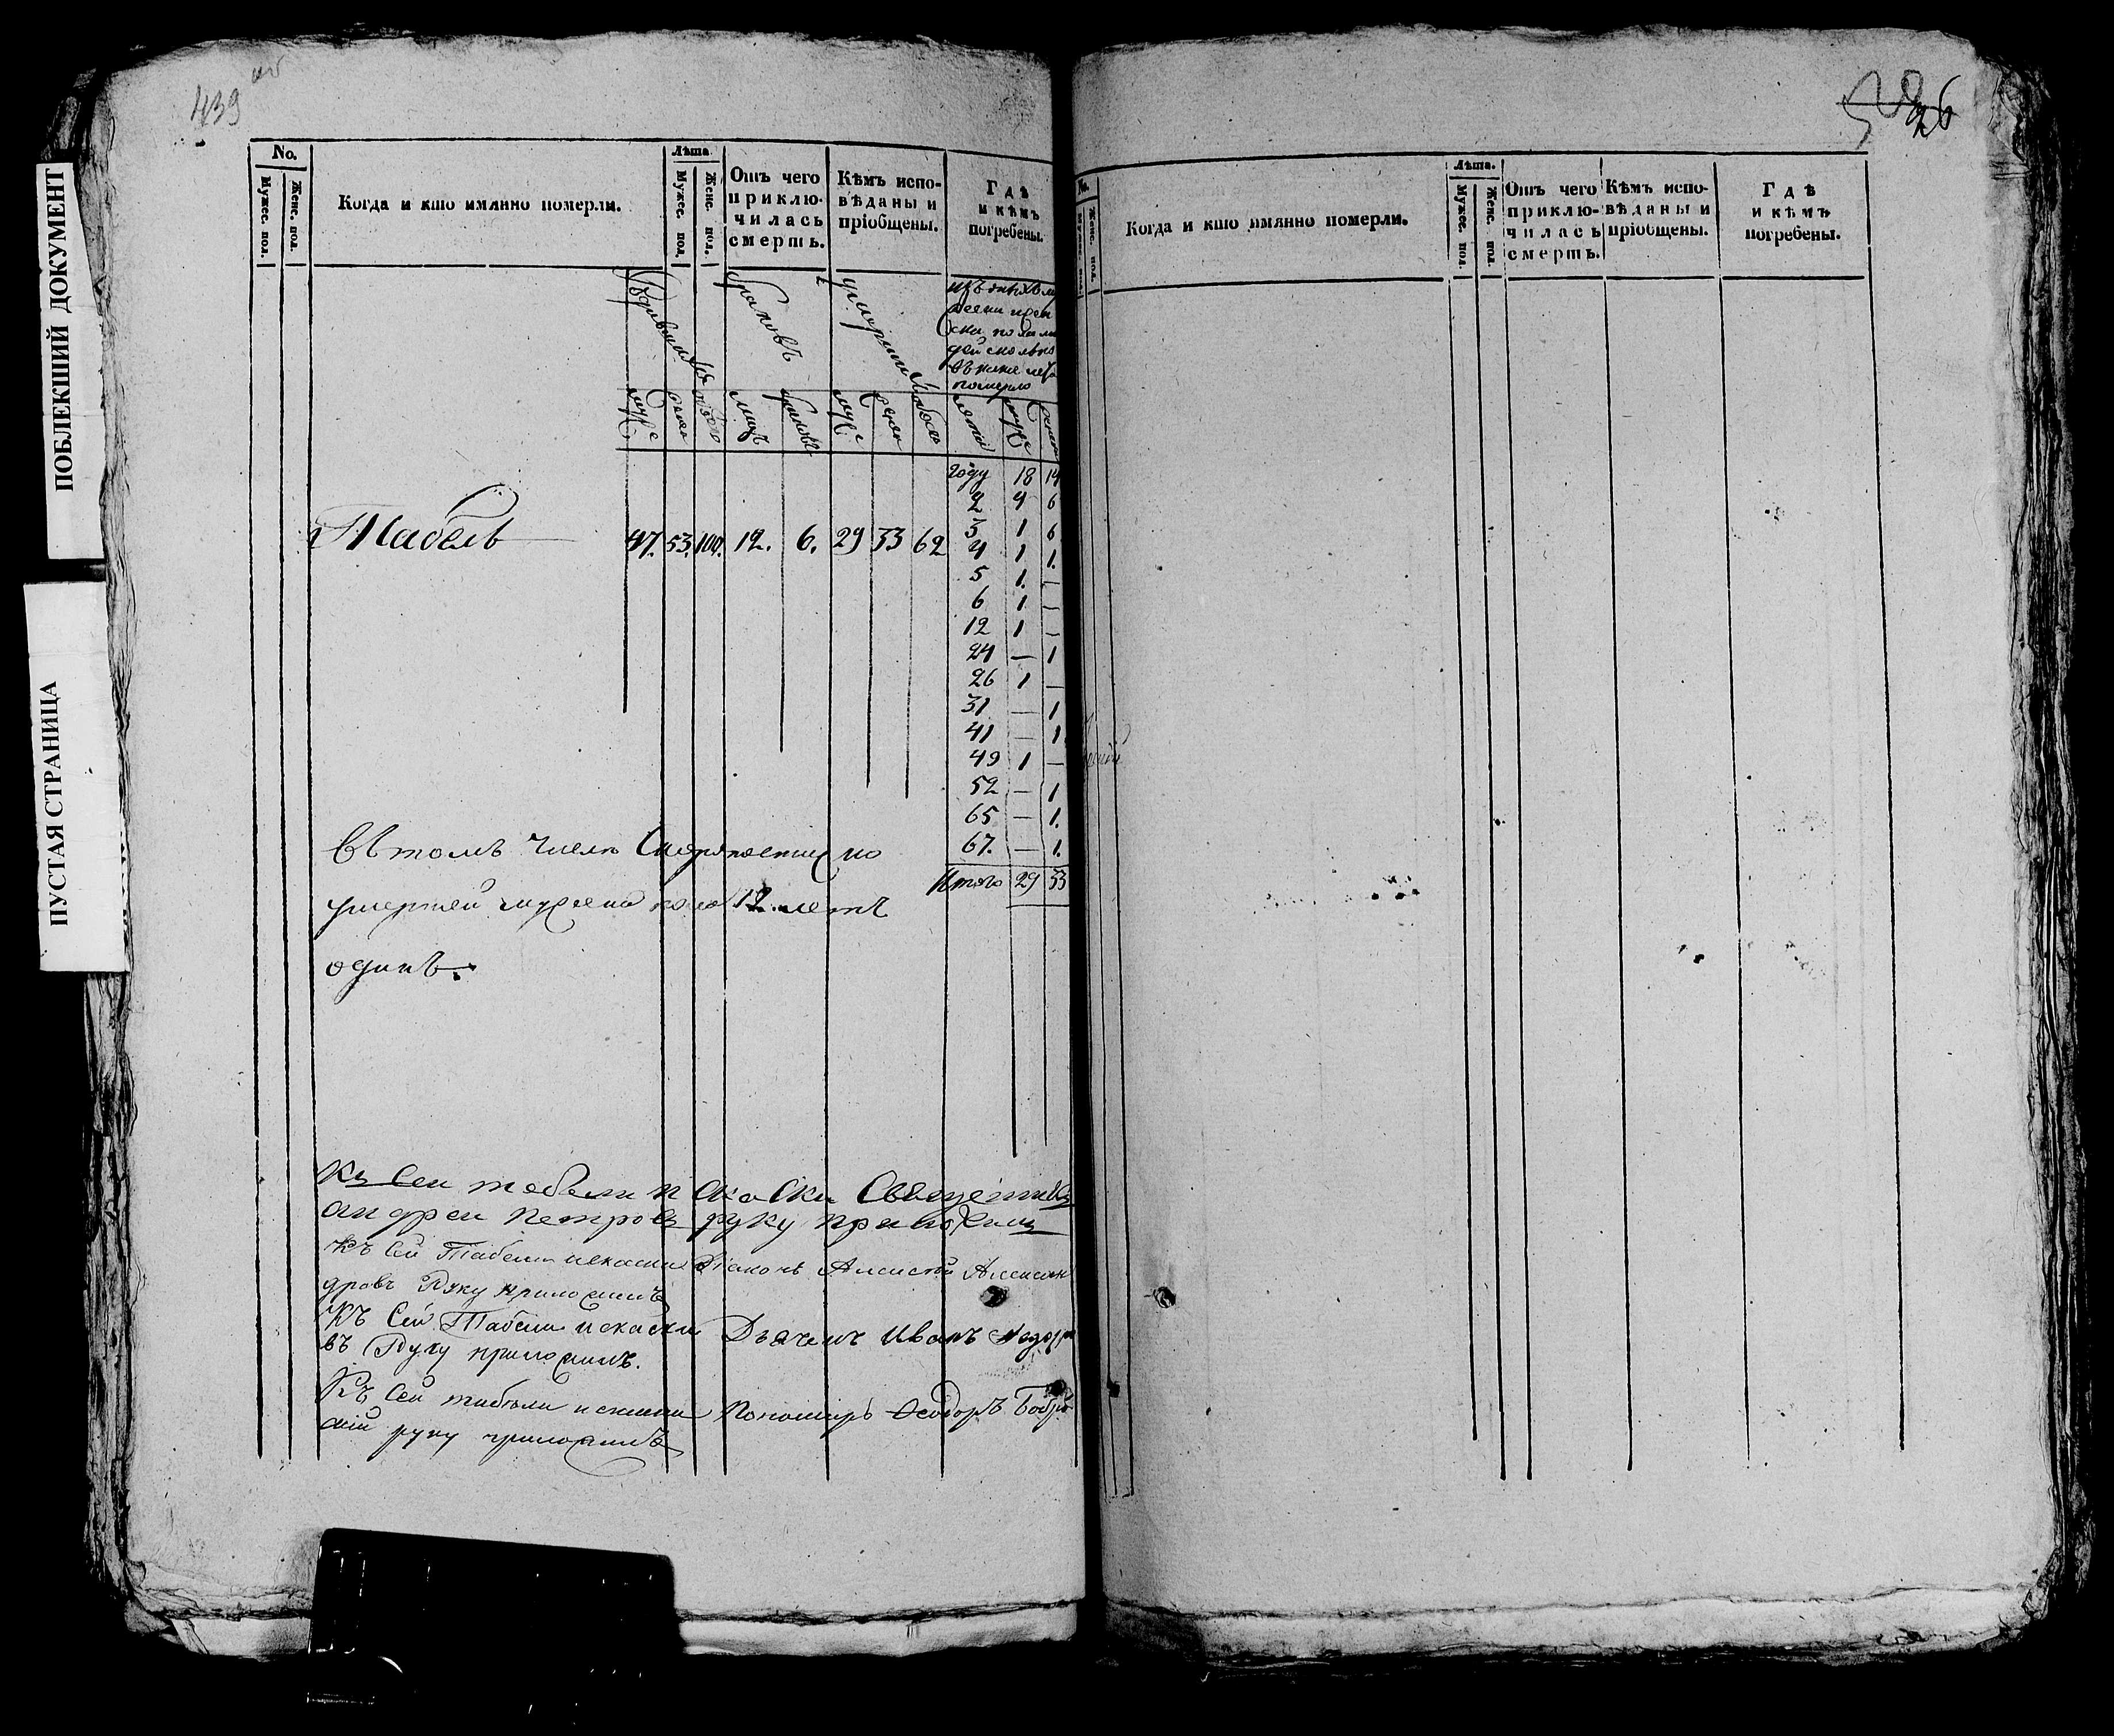 ПОБЛЕКШИЙ ДОКУМЕНТ
ПУСТАЯ СТРАНИЦА
439
No.
Мужес. пол.
Женс. пол.
Когда и кто имянно померли.
Лѣта
Мужес. пол.
Женс. пол.
Отъ чего приклю-
чилась
смерть.
Кѣмъ испо-
вѣданы и
пріобщены.
Гдѣ
и кѣмъ
погребены.
браковъ
Табель
47. 53. 100. 12. 6. 29 33 62
году 18 14
2 4 6
3 1 6
4 1 1.
5 1. —
6 1 —
12 1 —
24 — 1
26 1 —
31 — 1
41 — 1.
49 1 —
52 — 1
65 — 1.
67. — 1.
Итого 29 33
Въ томъ числѣ Скоропостижно
умершей мужска пола 12 летъ
одинъ.
Къ Сеи табели и Скаски Священникъ
андреи Петровъ руку приложилъ
Къ Сей Табели искаски Діаконъ Алексѣй Алексан
дровъ Руку приложилъ
Къ Сей Табели искаски Дьячекъ Иванъ
въ Руку приложилъ.
Къ Сей табели искаски Пономарь Ѳеодоръ Бобров
скій руку приложилъ
26
No.
Мужес. пол.
Женс. пол.
Когда и кто имянно померли.
Лѣта.
Мужес. пол.
Женс. пол.
Отъ чего
приклю-
чилась
смерть.
Кѣмъ испо-
вѣданы и
пріобщены.
Гдѣ
и кѣмъ
погребены.